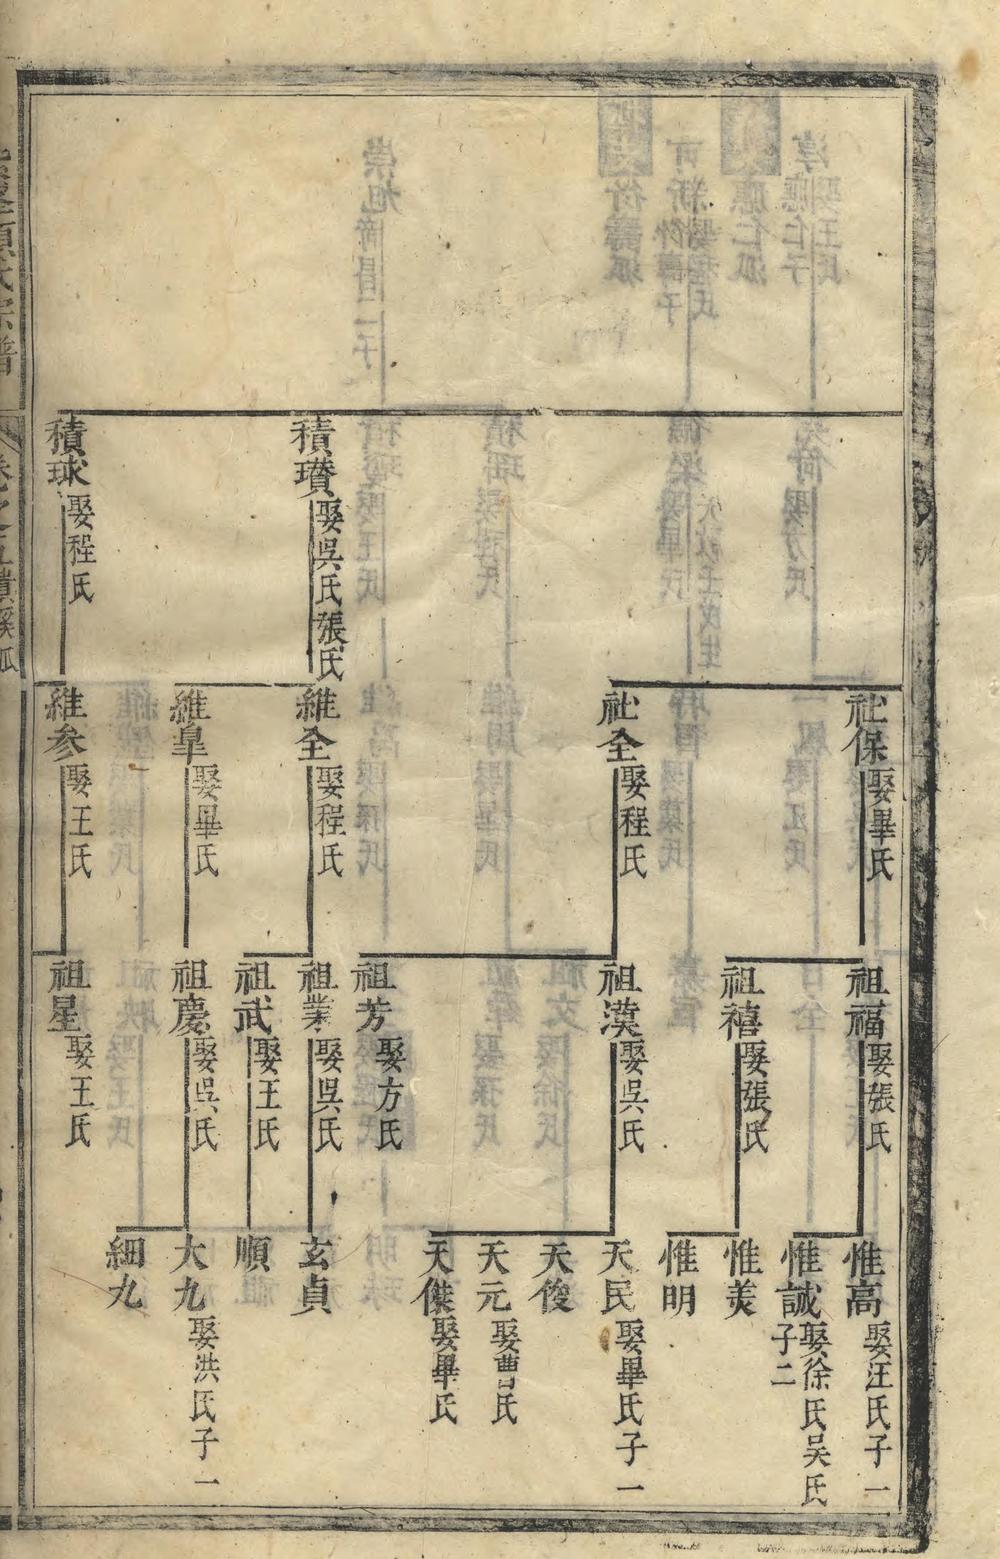 積瓚 娶吳氏張氏
積球 娶程氏
社保 娶畢氏
社全 娶程氏
維全 娶程氏
維阜 娶畢氏
維參 娶王氏
祖福 娶張氏
祖禧 娶張氏
祖漢 娶吳氏
祖芳 娶方氏
祖業 娶吳氏
祖武 娶王氏
祖慶 娶吳氏
祖星 娶王氏
惟高 娶汪氏子一
惟誠 娶徐氏吴氏子二
惟美
惟明
天民 娶畢氏子一
天俊
天元 娶曹氏
天傑 娶畢氏
玄貞
順
大九 娶洪氏子一
細九
宗譜
卷之五